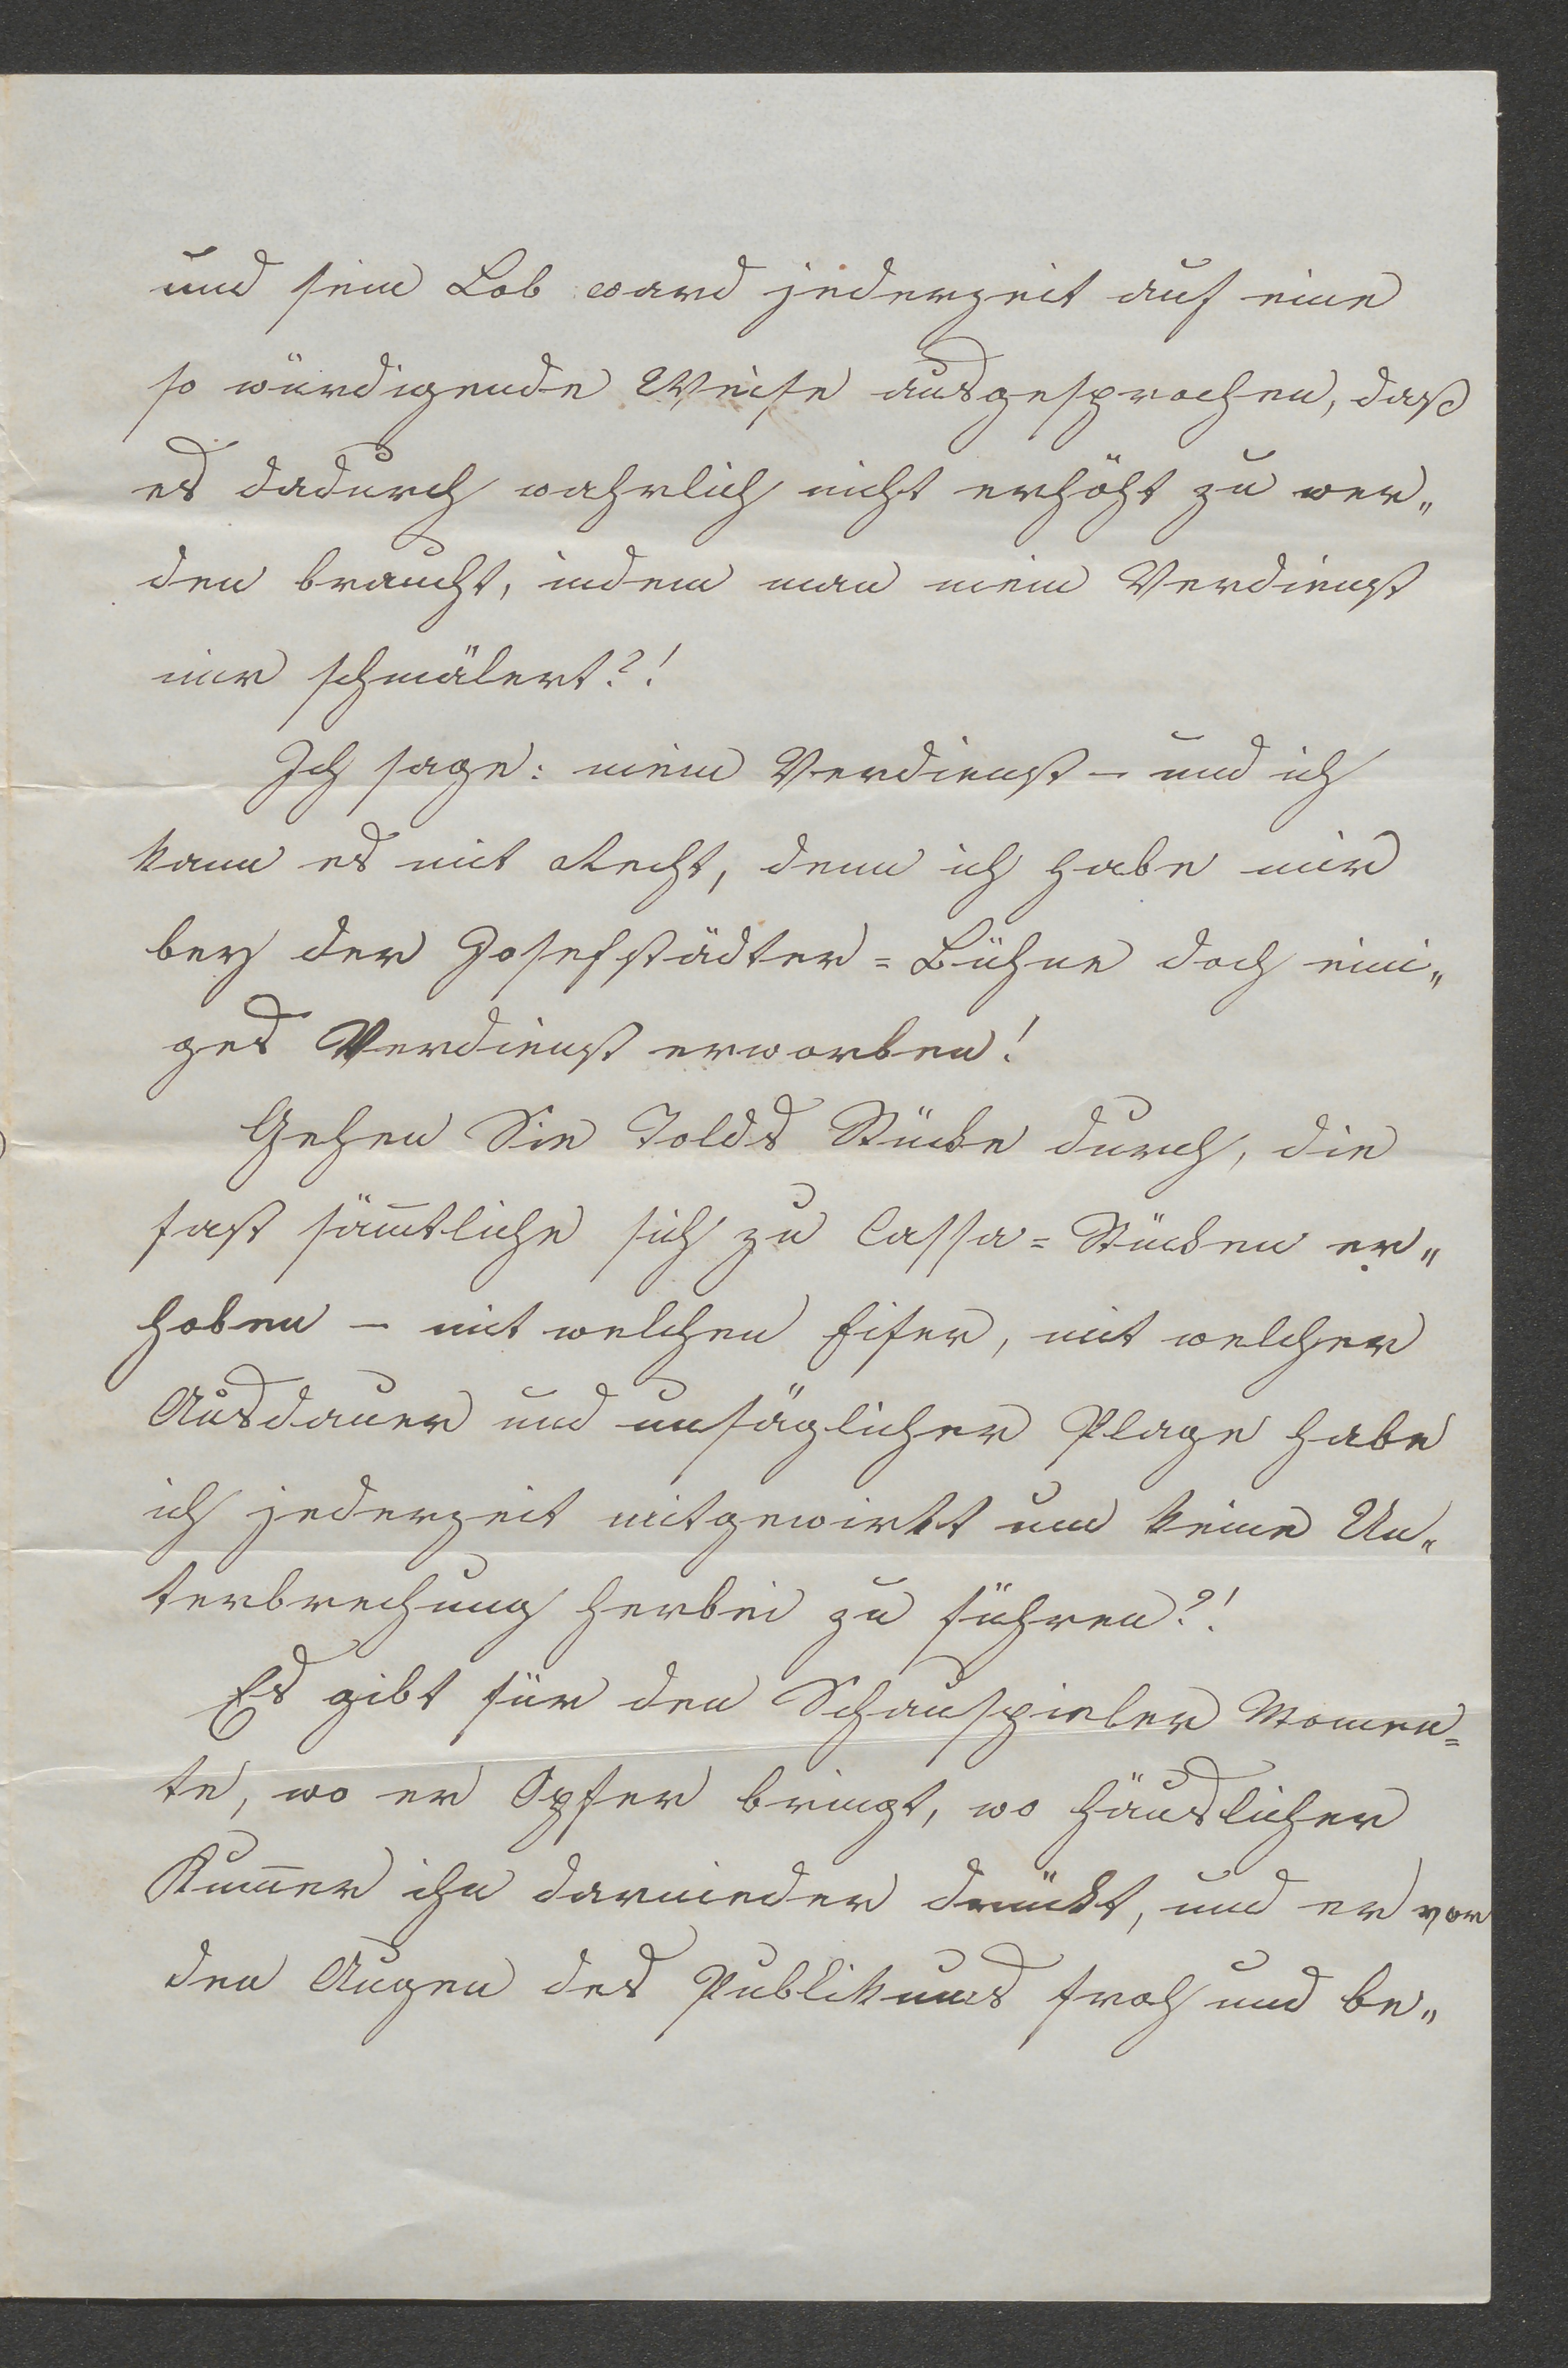 und sein Lob ward jederzeit auf eine
so würdigende Weise ausgesprochen, daß
es dadurch wahrlich nicht erhöht zu wer„
den braucht, indem man mein Verdienst
mir schmälert?!
Ich sage: mein Verdienst – und ich
kann es mit Recht, denn ich habe mir
bey der Josefstädter=Bühne doch eini„
ges Verdienst erworben!
Gehen Sie Tolds Stücke durch, die
fast sämtliche sich zu Cassa=Stücken er„
hoben – mit welchen Eifer, mit welcher
Ausdauer und unsäglicher Plage habe
ich jederzeit mitgewirkt um keine Un„
terbrechung herbei zu führen?!
Es gibt für den Schauspieler Momen=
te, wo er Opfer bringt, wo häuslicher
Kum̅er ihn darnieder drückt, und er vor
den Augen des Publikums froh und be„